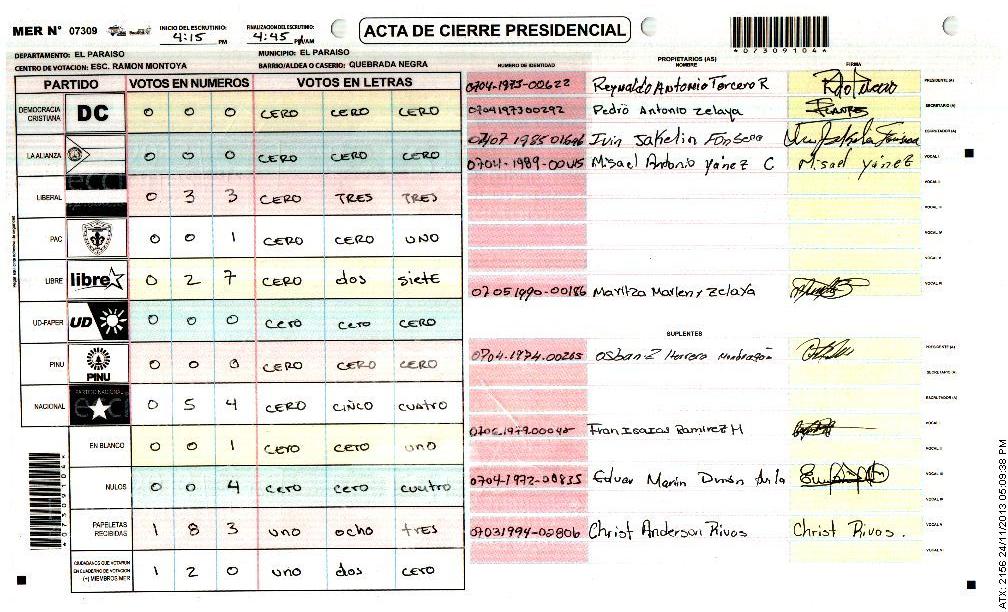 MER N° 07309
INICIO DEL ESCRUTINIO: 4:15 PM
FINALIZACION DEL ESCRUTINIO: 4:45 PM/AM
ACTA DE CIERRE PRESIDENCIAL
*07309104*
DEPARTAMENTO: EL PARAISO
MUNICIPIO: EL PARAISO
CENTRO DE VOTACION: ESC. RAMON MONTOYA
BARRIO/ALDEA O CASERIO: QUEBRADA NEGRA
PARTIDO VOTOS EN NUMEROS VOTOS EN LETRAS
DEMOCRACIA CRISTIANA DC 0 0 0 CERO CERO CERO
LA ALIANZA 0 0 0 CERO CERO CERO
LIBERAL 0 3 3 CERO TRES TRES
PAC 0 0 1 CERO CERO UNO
LIBRE libre 0 2 7 CERO dos siete
UD-FAPER UD 0 0 0 Cero Cero CERO
PINU PINU 0 0 0 CERO CERO CERO
NACIONAL 0 5 4 CERO CINCO CUATRO
EN BLANCO 0 0 1 Cero Cero uno
NULOS 0 0 4 Cero Cero cuatro
PAPELETAS RECIBIDAS 1 8 3 uno ocho tres
CIUDADANOS QUE VOTARON EN CUADERNO DE VOTACION (+) MIEMBROS MER 1 2 0 uno dos cero
*07309104*
PROPIETARIOS (AS)
NUMERO DE IDENTIDAD NOMBRE FIRMA
0704-1975-00622 Reynaldo Antonio Tercero R PRESIDENTE (A)
0704197300292 Pedro Antonio Zelaya SECRETARIO (A)
Fonseca ESCRUTADOR (A)
0704-1989- Misael Antonio Yánez C Misael Yánez VOCAL I
VOCAL II
VOCAL III
VOCAL IV
VOCAL V
07051990-00186 Maritza Marleny Zelaya VOCAL VI
SUPLENTES
0704-1974-00265 Osban Z Herrera PRESIDENTE (A)
SECRETARIO (A)
ESCRUTADOR (A)
Fran Isaias Ramirez H VOCAL I
VOCAL II
0704-1972-00835 VOCAL III
VOCAL IV
07031994-02806 Christ Anderson Rivas Christ Rivas. VOCAL V
VOCAL VI
ATX: 2156 24/11/2013 05:09:38 PM